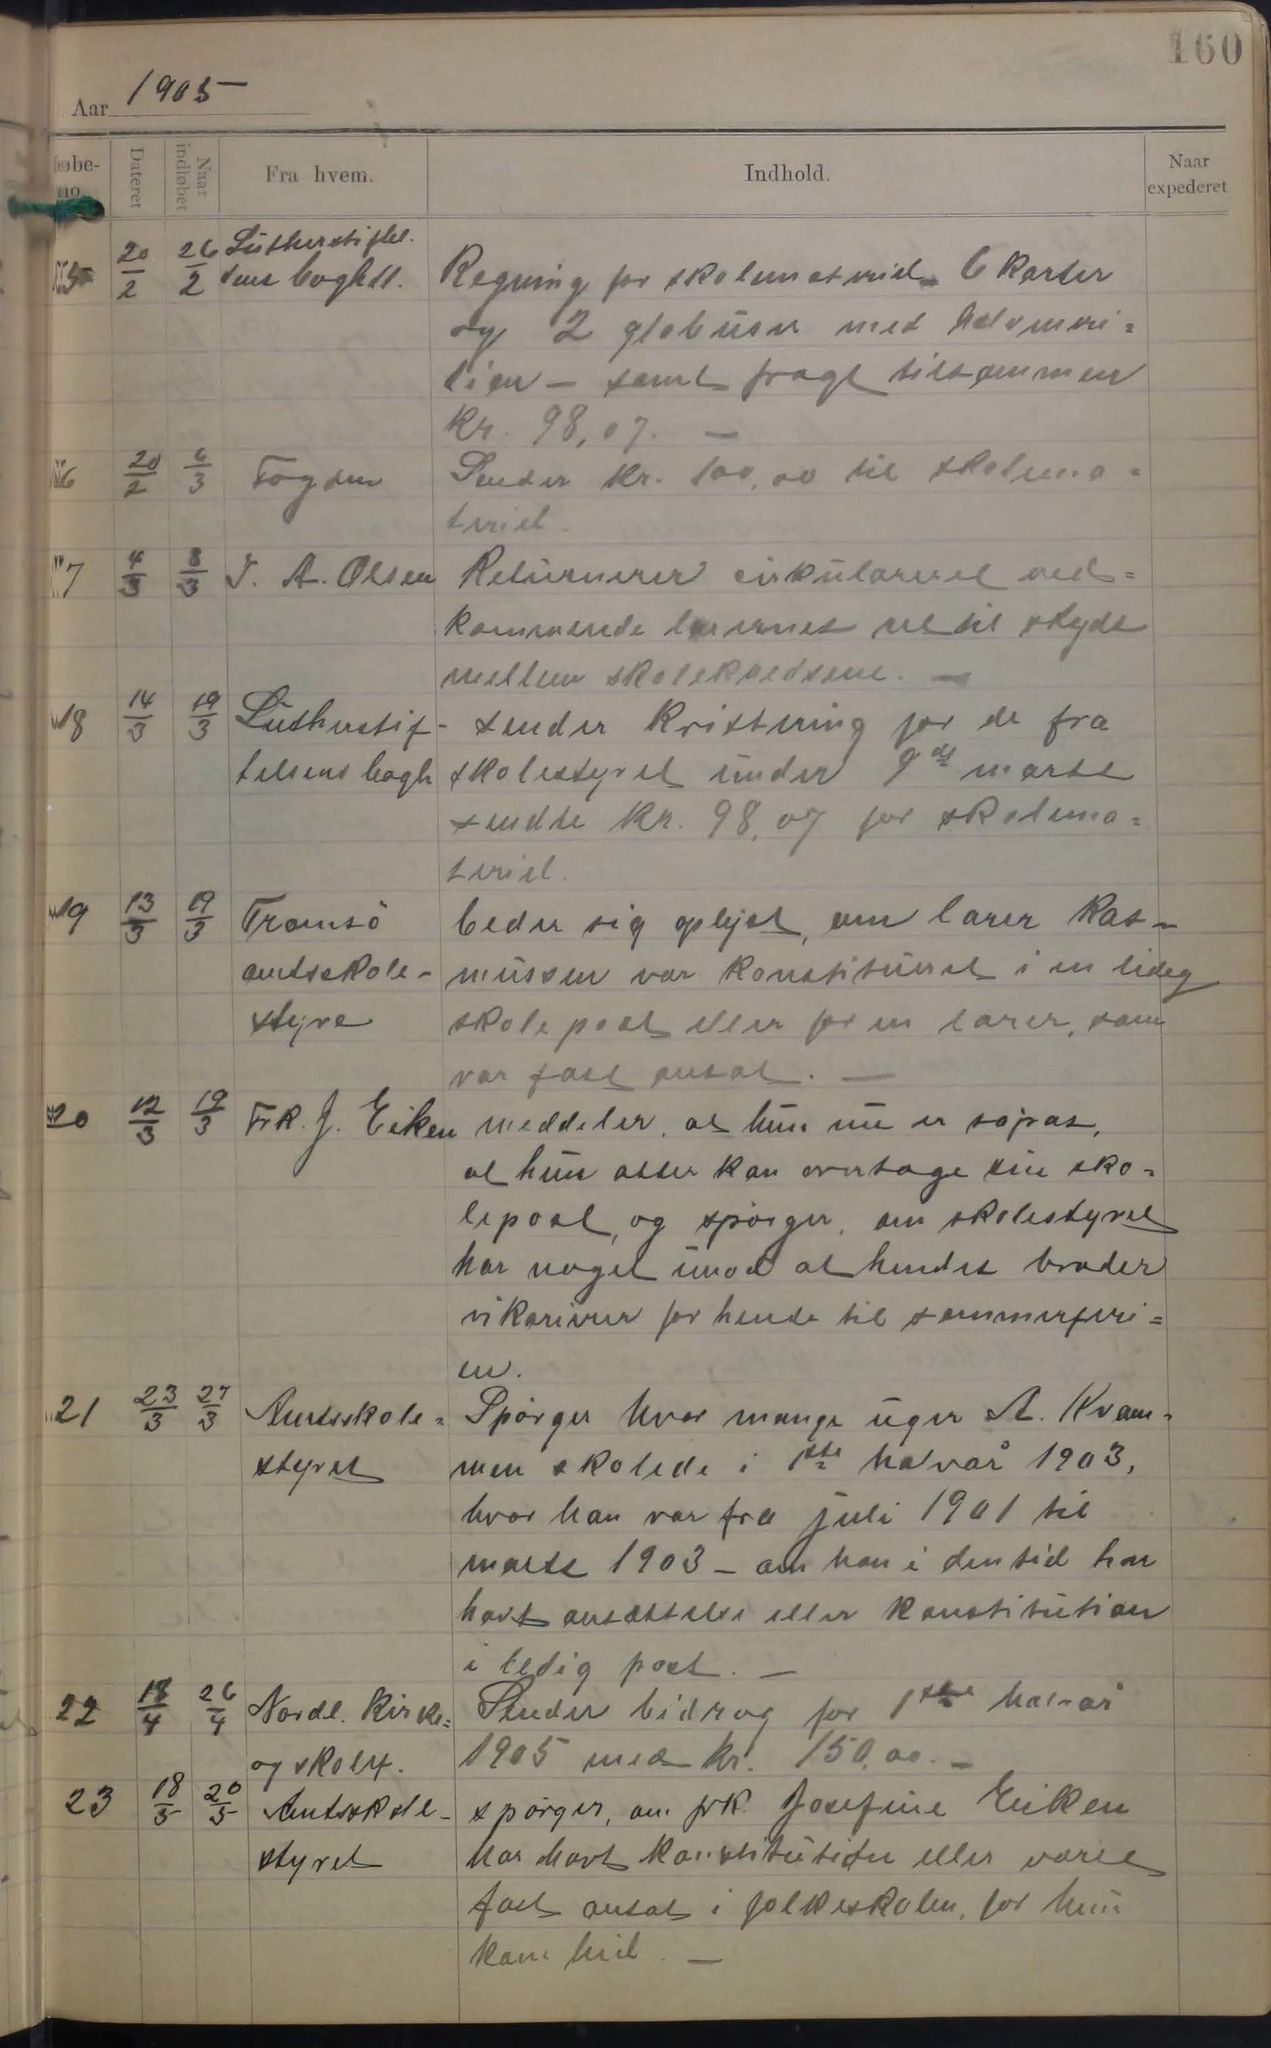 160
Aar 1905
Løbe-no.
Dateret
Naar indløbet
Fra hvem.
Indhold.
Naar expederet
15 20/2 26/2 Lutherstiftel.
sens boghdl. Regning for skolemateriel 6 karter
og 2 globuser med halvmeri=
dian – samt fragt tilsammen
kr. 98,07. –
16 20/2 6/3 Fogden Sender kr. 100,00 til skolema=
teriel.
17 4/3 8/3 J. A. Olsen Returnerer cirkulareret ved=
kommende lærernes ret til skyds
mellem skolekredsene. –
18 14/3 19/3 Lutherstif- sender kvittering for de fra
telsens bogh skolestyret under 9de marts
sendte kr. 98,07 for skolema=
teriel.
19 13/3 19/3 Tromsö beder sig oplyst, om lærer Ras-
amtsskole- mussen var konstitueret i en ledig
styre skolepost eller for en lærer, som
var fast ansat. –
20 12/3 19/3 Frk. J. Eiken meddeler, at hun nu er såpas,
at hun atter kan overtage sin sko=
lepost, og spörger, om skolestyret
har noget imod at hendes broder
vikarierer for hende til sommerferi=
en.
21 23/3 27/3 Amtsskole= Spörger hvor mange uger A. Kvam-
styret men skolede i 1ste halvår 1903,
hvor han var fra juli 1901 til
marts 1903 – om han i den tid har
havt ansættelse eller konstitution
i ledig post. –
22 18/4 26/4 Nordl. kirke= Sender bidrag for 1ste halvår
og skolef. 1905 med kr. 150,00. –
23 18/5 20/5 Amtsskole- spörger, om frk. Josefine Eiken
styret har havt konstitution eller været
fast ansat i folkeskolen, för hun
kom hid. –